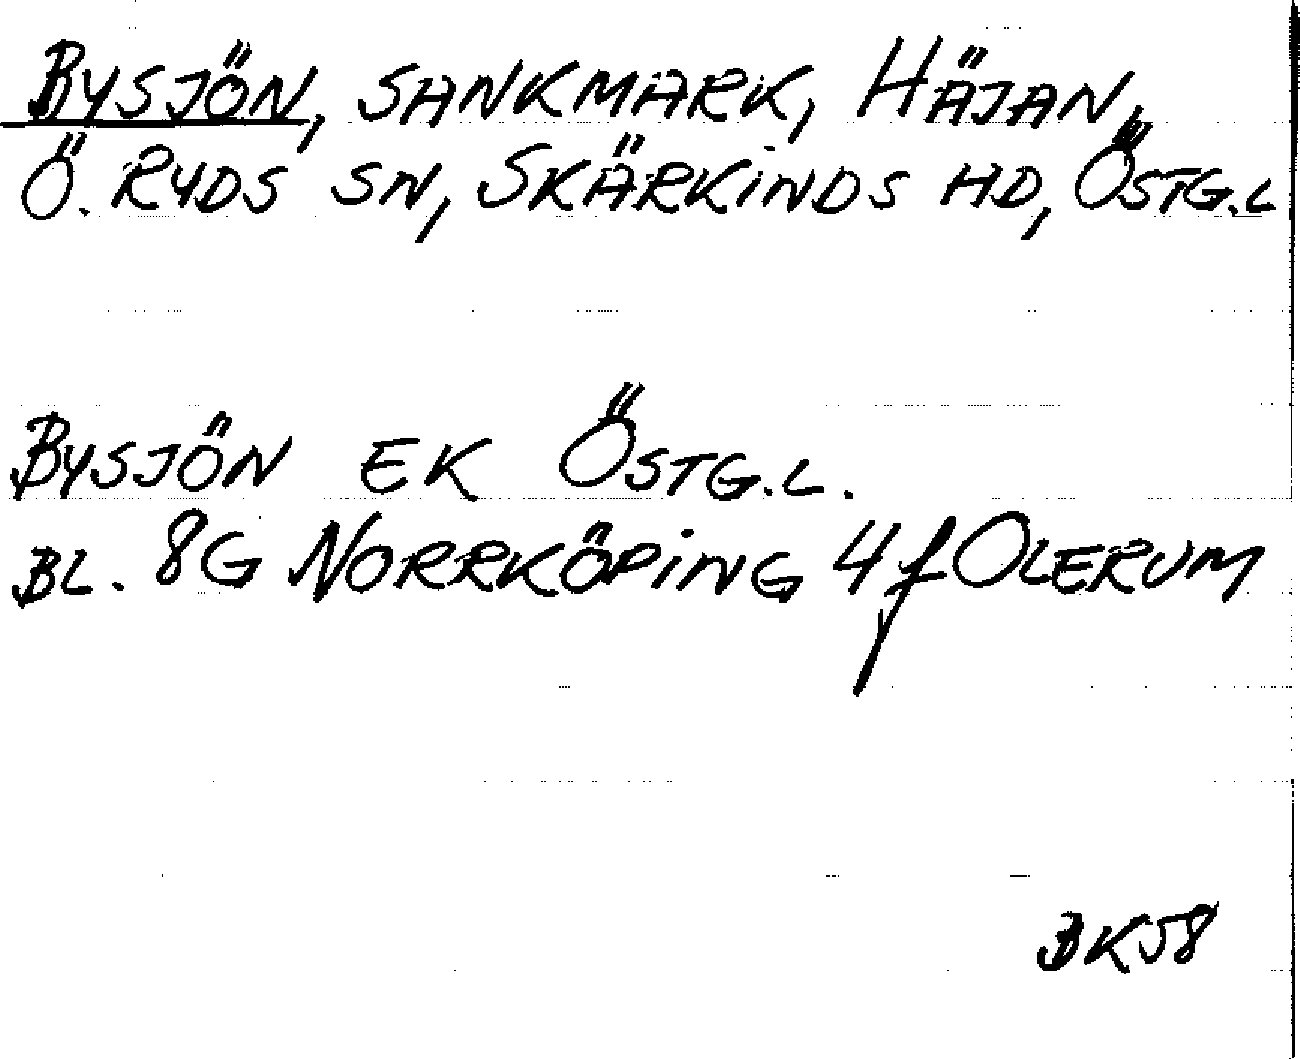 BYSJÖN, SANKMARK, HÄJAN,
Ö. RYDS SN, SKÄRKINDS HD, ÖSTG.L
BYSJÖN EK ÖSTG.L.
BL. 8G NORRKÖPING 4f OLERUM
BK58